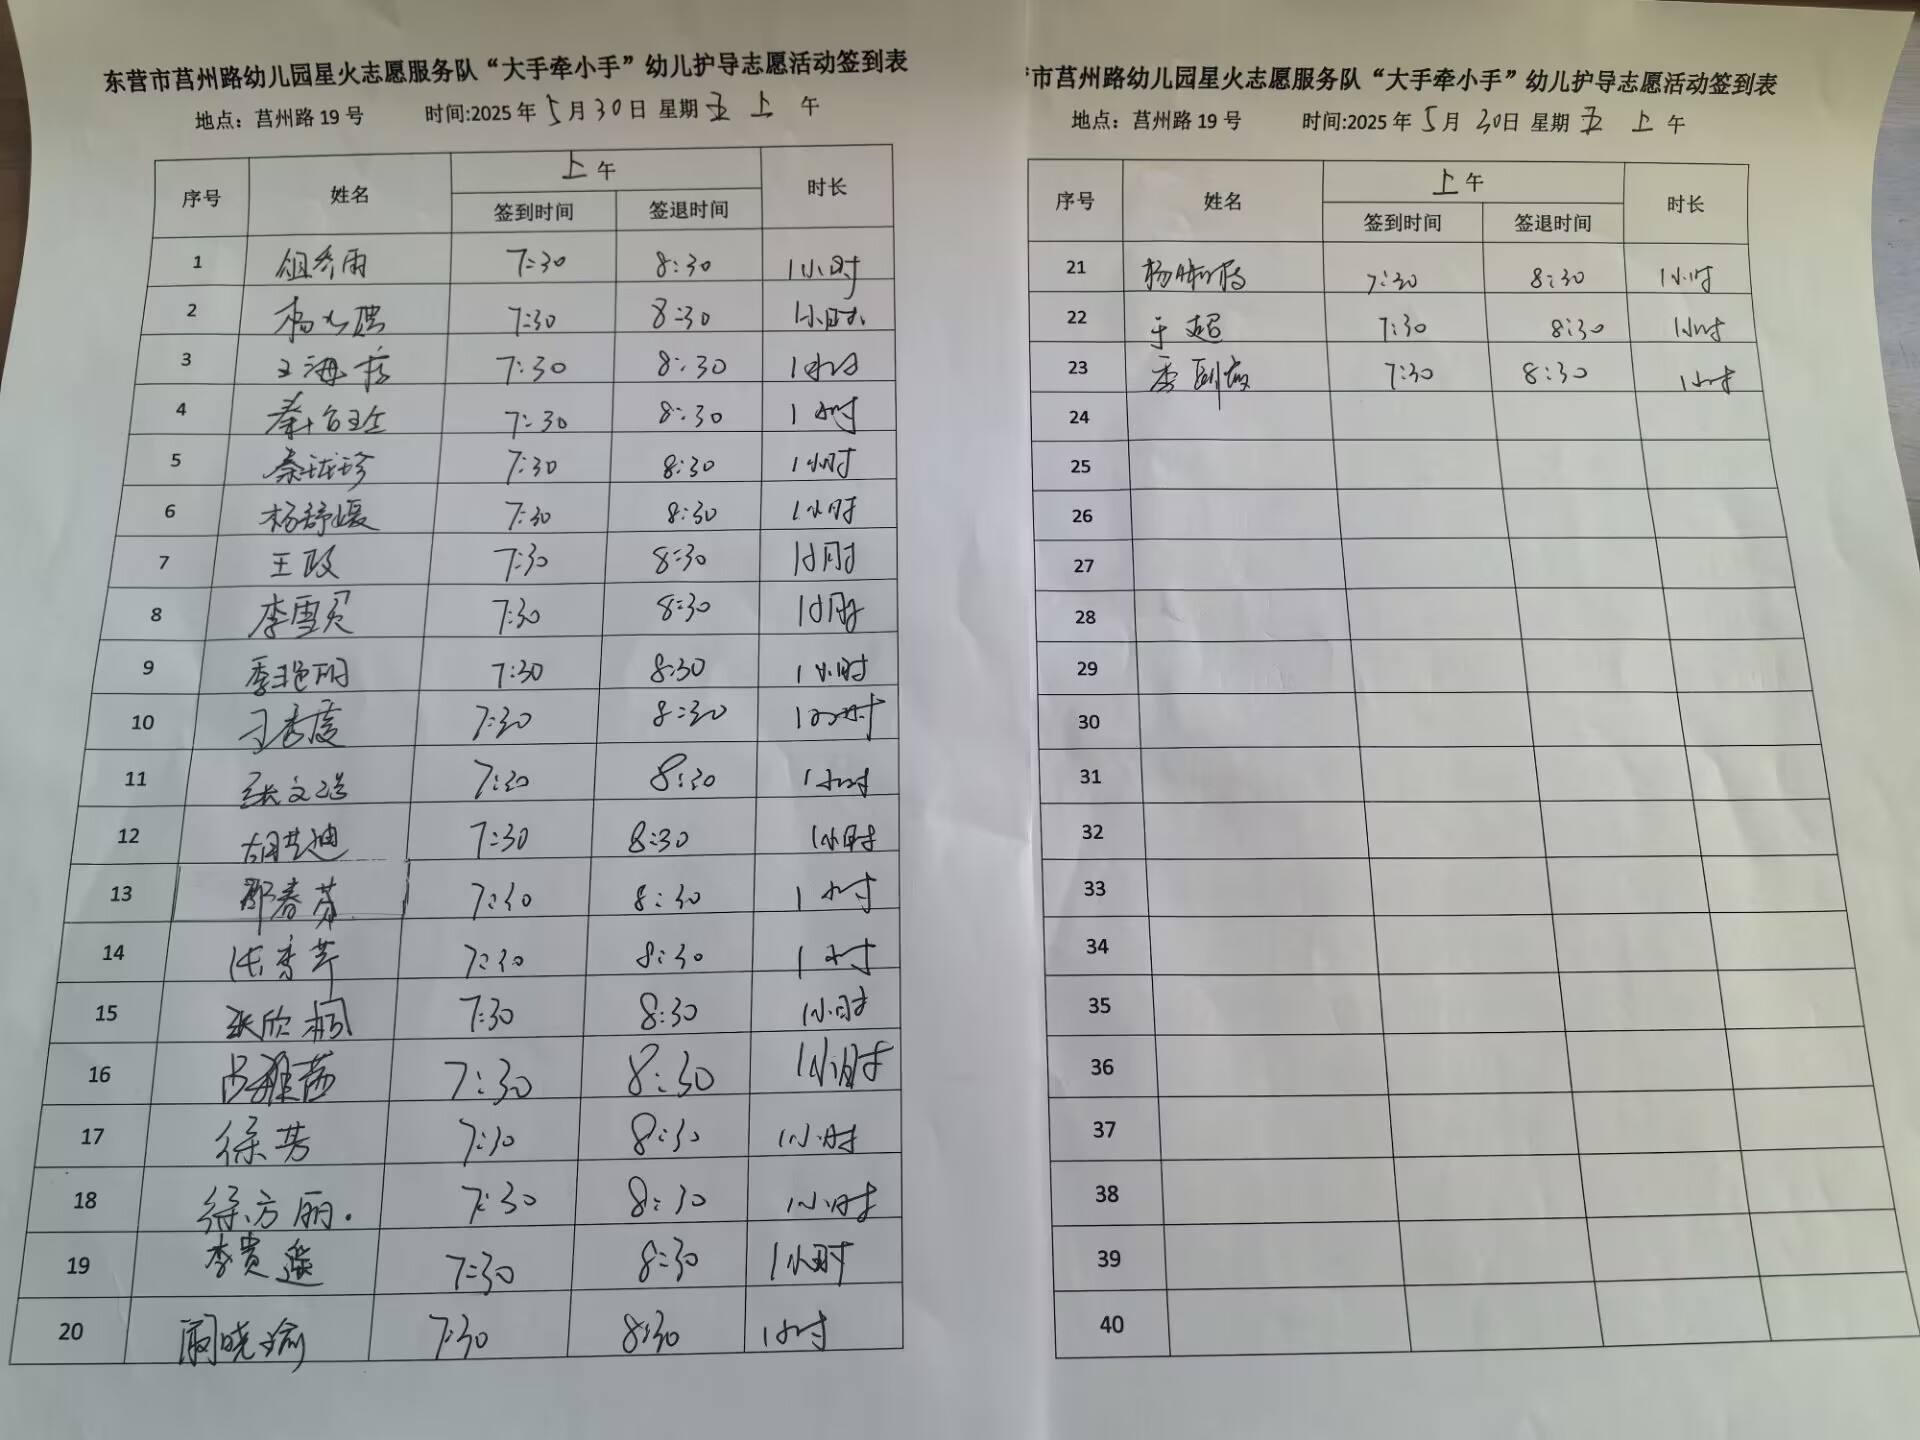 东营市莒州路幼儿园星火志愿服务队“大手牵小手”幼儿护导志愿活动签到表
地点：莒州路 19 号 时间:2025 年 5 月 30 日 星期 五 上 午
序号 姓名 上 午 时长
签到时间 签退时间
1 7:30 8:30 1小时
2 杨 7:30 8:30 1小时
3 王海 7:30 8:30 1小时
4 秦 7:30 8:30 1小时
5 秦 珍 7:30 8:30 1小时
6 杨舒媛 7:30 8:30 1小时
7 王政 7:30 8:30 1小时
8 李雪 7:30 8:30 1小时
9 季艳丽 7:30 8:30 1小时
10 刁秀霞 7:30 8:30 1小时
11 张文 7:30 8:30 1小时
12 胡 迪 7:30 8:30 1小时
13 春芳 7:30 8:30 1小时
14 张秀芹 7:30 8:30 1小时
15 张欣桐 7:30 8:30 1小时
16 吕雅茜 7:30 8:30 1小时
17 徐芳 7:30 8:30 1小时
18 徐方丽. 7:30 8:30 1小时
19 李贵遥 7:30 8:30 1小时
20 阚晓瑜 7:30 8:30 1小时
市莒州路幼儿园星火志愿服务队“大手牵小手”幼儿护导志愿活动签到表
地点：莒州路 19 号 时间:2025 年 5 月 30日 星期 五 上 午
序号 姓名 上 午 时长
签到时间 签退时间
21 杨 7:30 8:30 1小时
22 于超 7:30 8:30 1小时
23 7:30 8:30 1小时
24
25
26
27
28
29
30
31
32
33
34
35
36
37
38
39
40